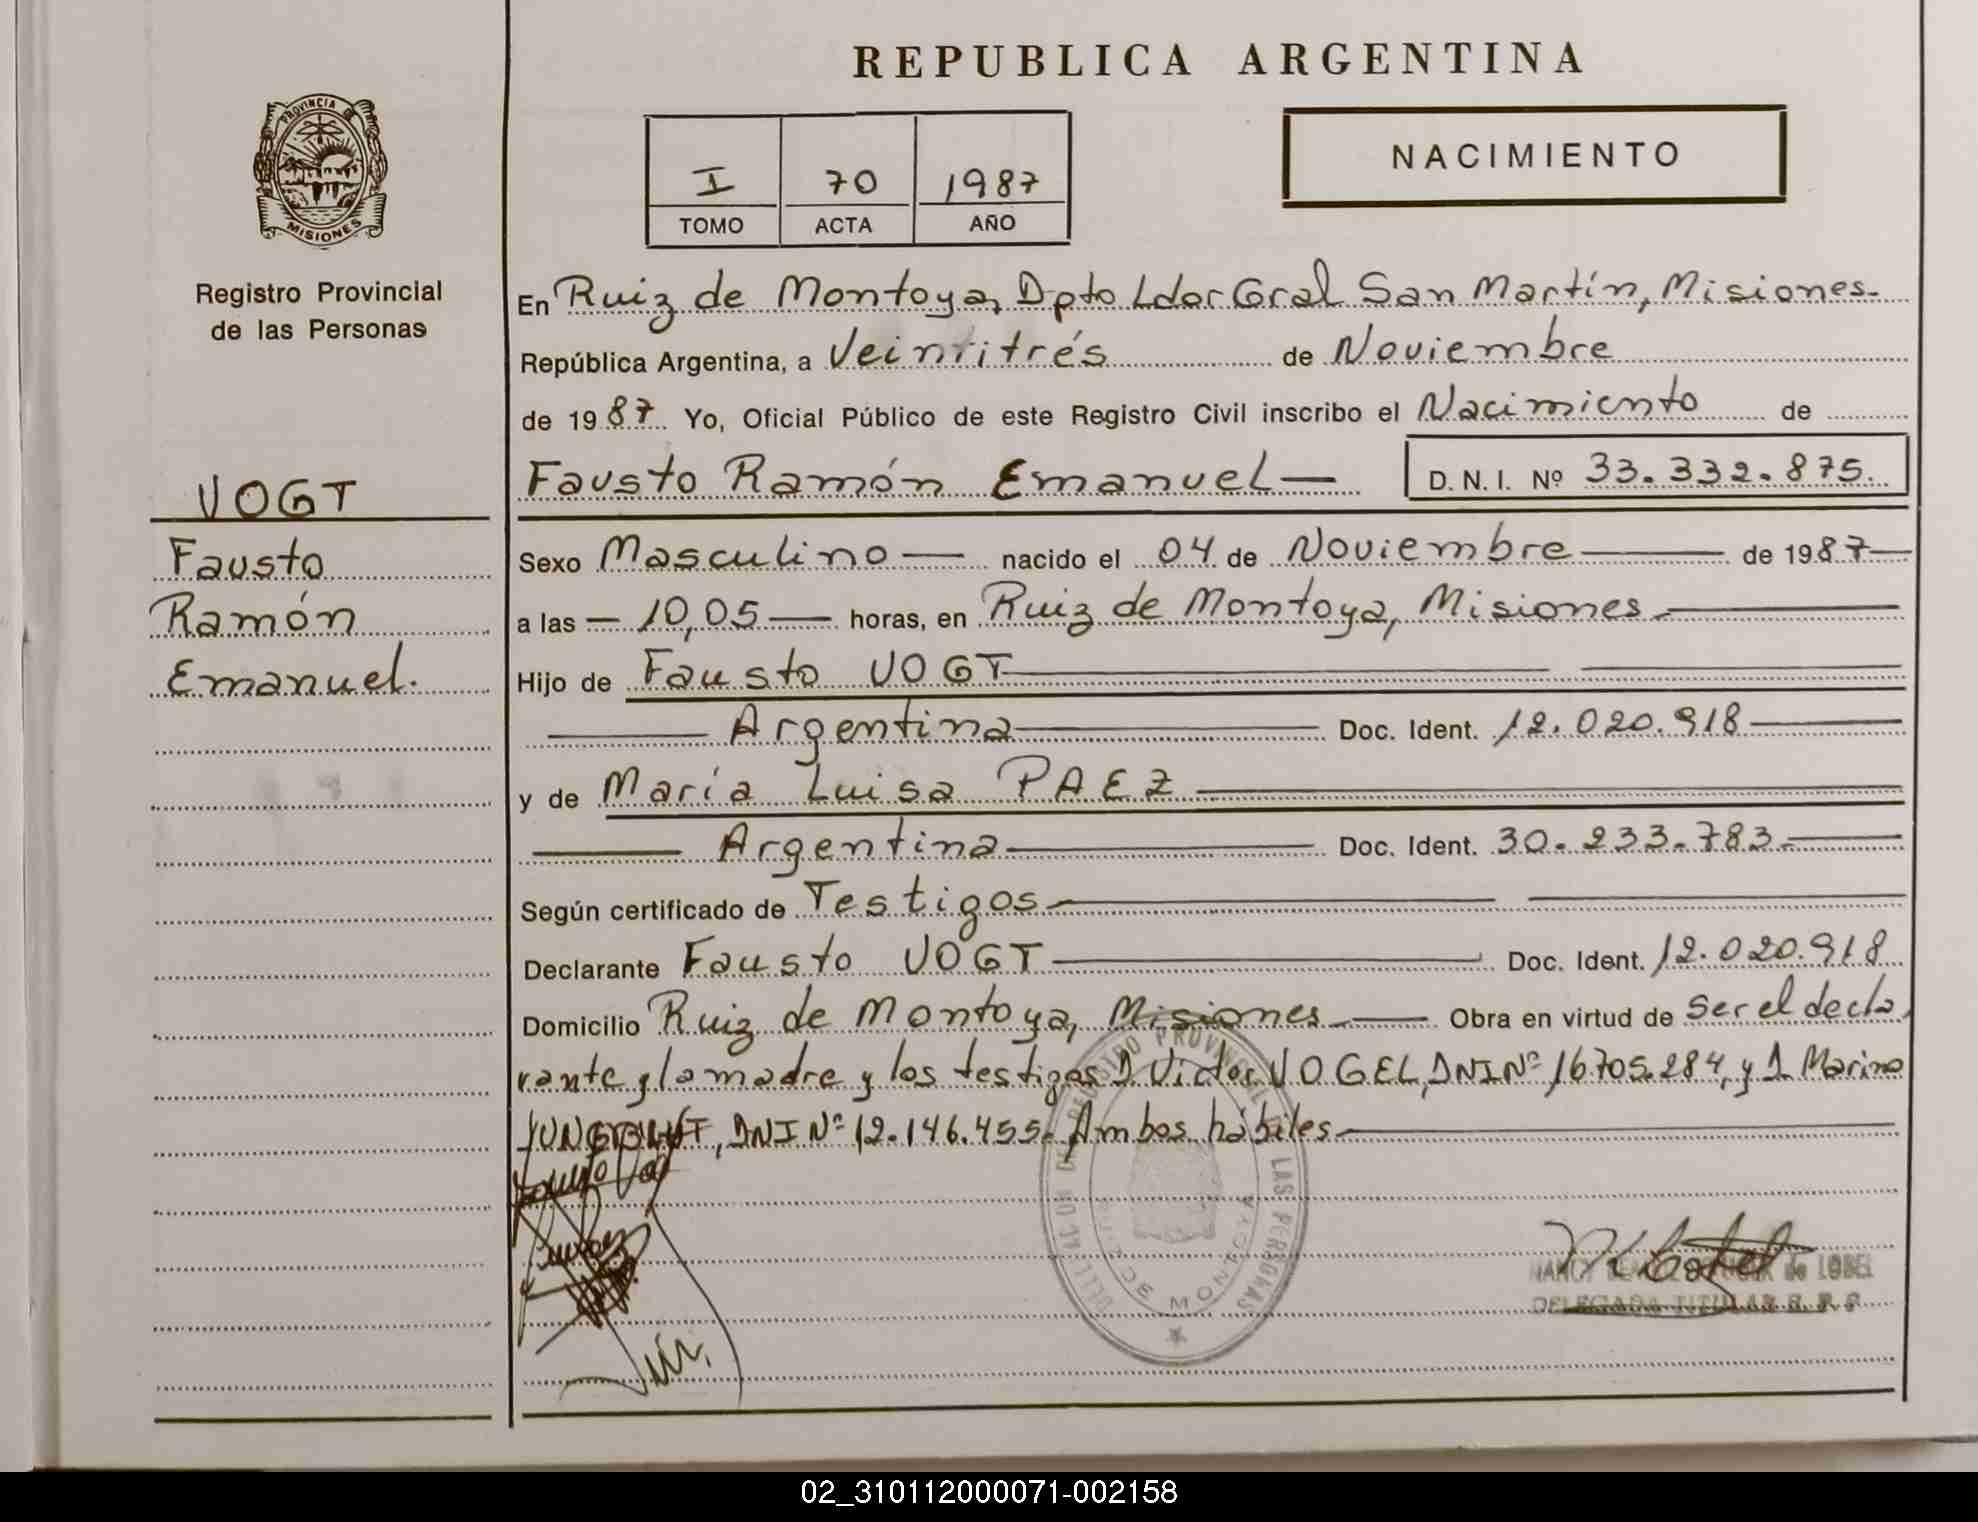 REPUBLICA ARGENTINA
PROVINCIA DE
MISIONES
Registro Provincial
de las Personas
I 70 1987
TOMO ACTA AÑO
NACIMIENTO
En Ruiz de Montoya, Dpto Ldor Gral San Martín, Misiones.
República Argentina, a Veintitrés de Noviembre
de 1987 Yo, Oficial Público de este Registro Civil inscribo el Nacimiento de
Fausto Ramón Emanuel — D. N. I. Nº 33.332.875.
VOGT
Fausto
Ramón
Emanuel.
Sexo Masculino — nacido el 04 de Noviembre — de 1987 —
a las — 10,05 — horas, en Ruiz de Montoya, Misiones —
Hijo de Fausto VOGT —
— Argentina — Doc. Ident. 12.020.918 —
y de María Luisa PAEZ —
— Argentina — Doc. Ident. 30.233.783. —
Según certificado de Testigos —
Declarante Fausto VOGT — Doc. Ident. 12.020.918
Domicilio Ruiz de Montoya, Misiones — Obra en virtud de ser el decla
rante y la madre y los testigos D. Victor VOGEL, DNI Nº 16.705.284, y D. Marino
DNI Nº 12.146.455. Ambos hábiles —
REGISTRO PROVINCIAL DE LAS PERSONAS
DE MONTOYA
de LOBEL
DELEGADA TITULAR R. P. P.
02_310112000071-002158